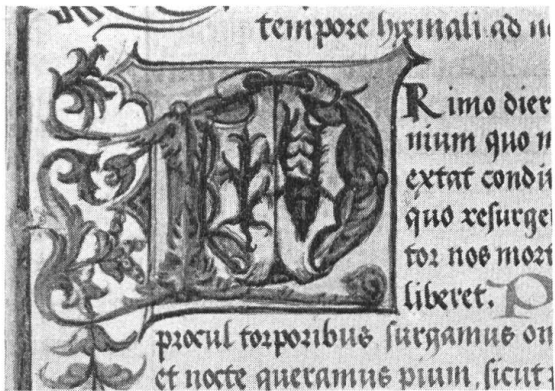 tempore hyemali ad n
PRimo dier
nium quo m
extat condi
quo resurge
tor nos mort
liberet. P
procul torporibus surgamus om
et nocte queramus pium sicut